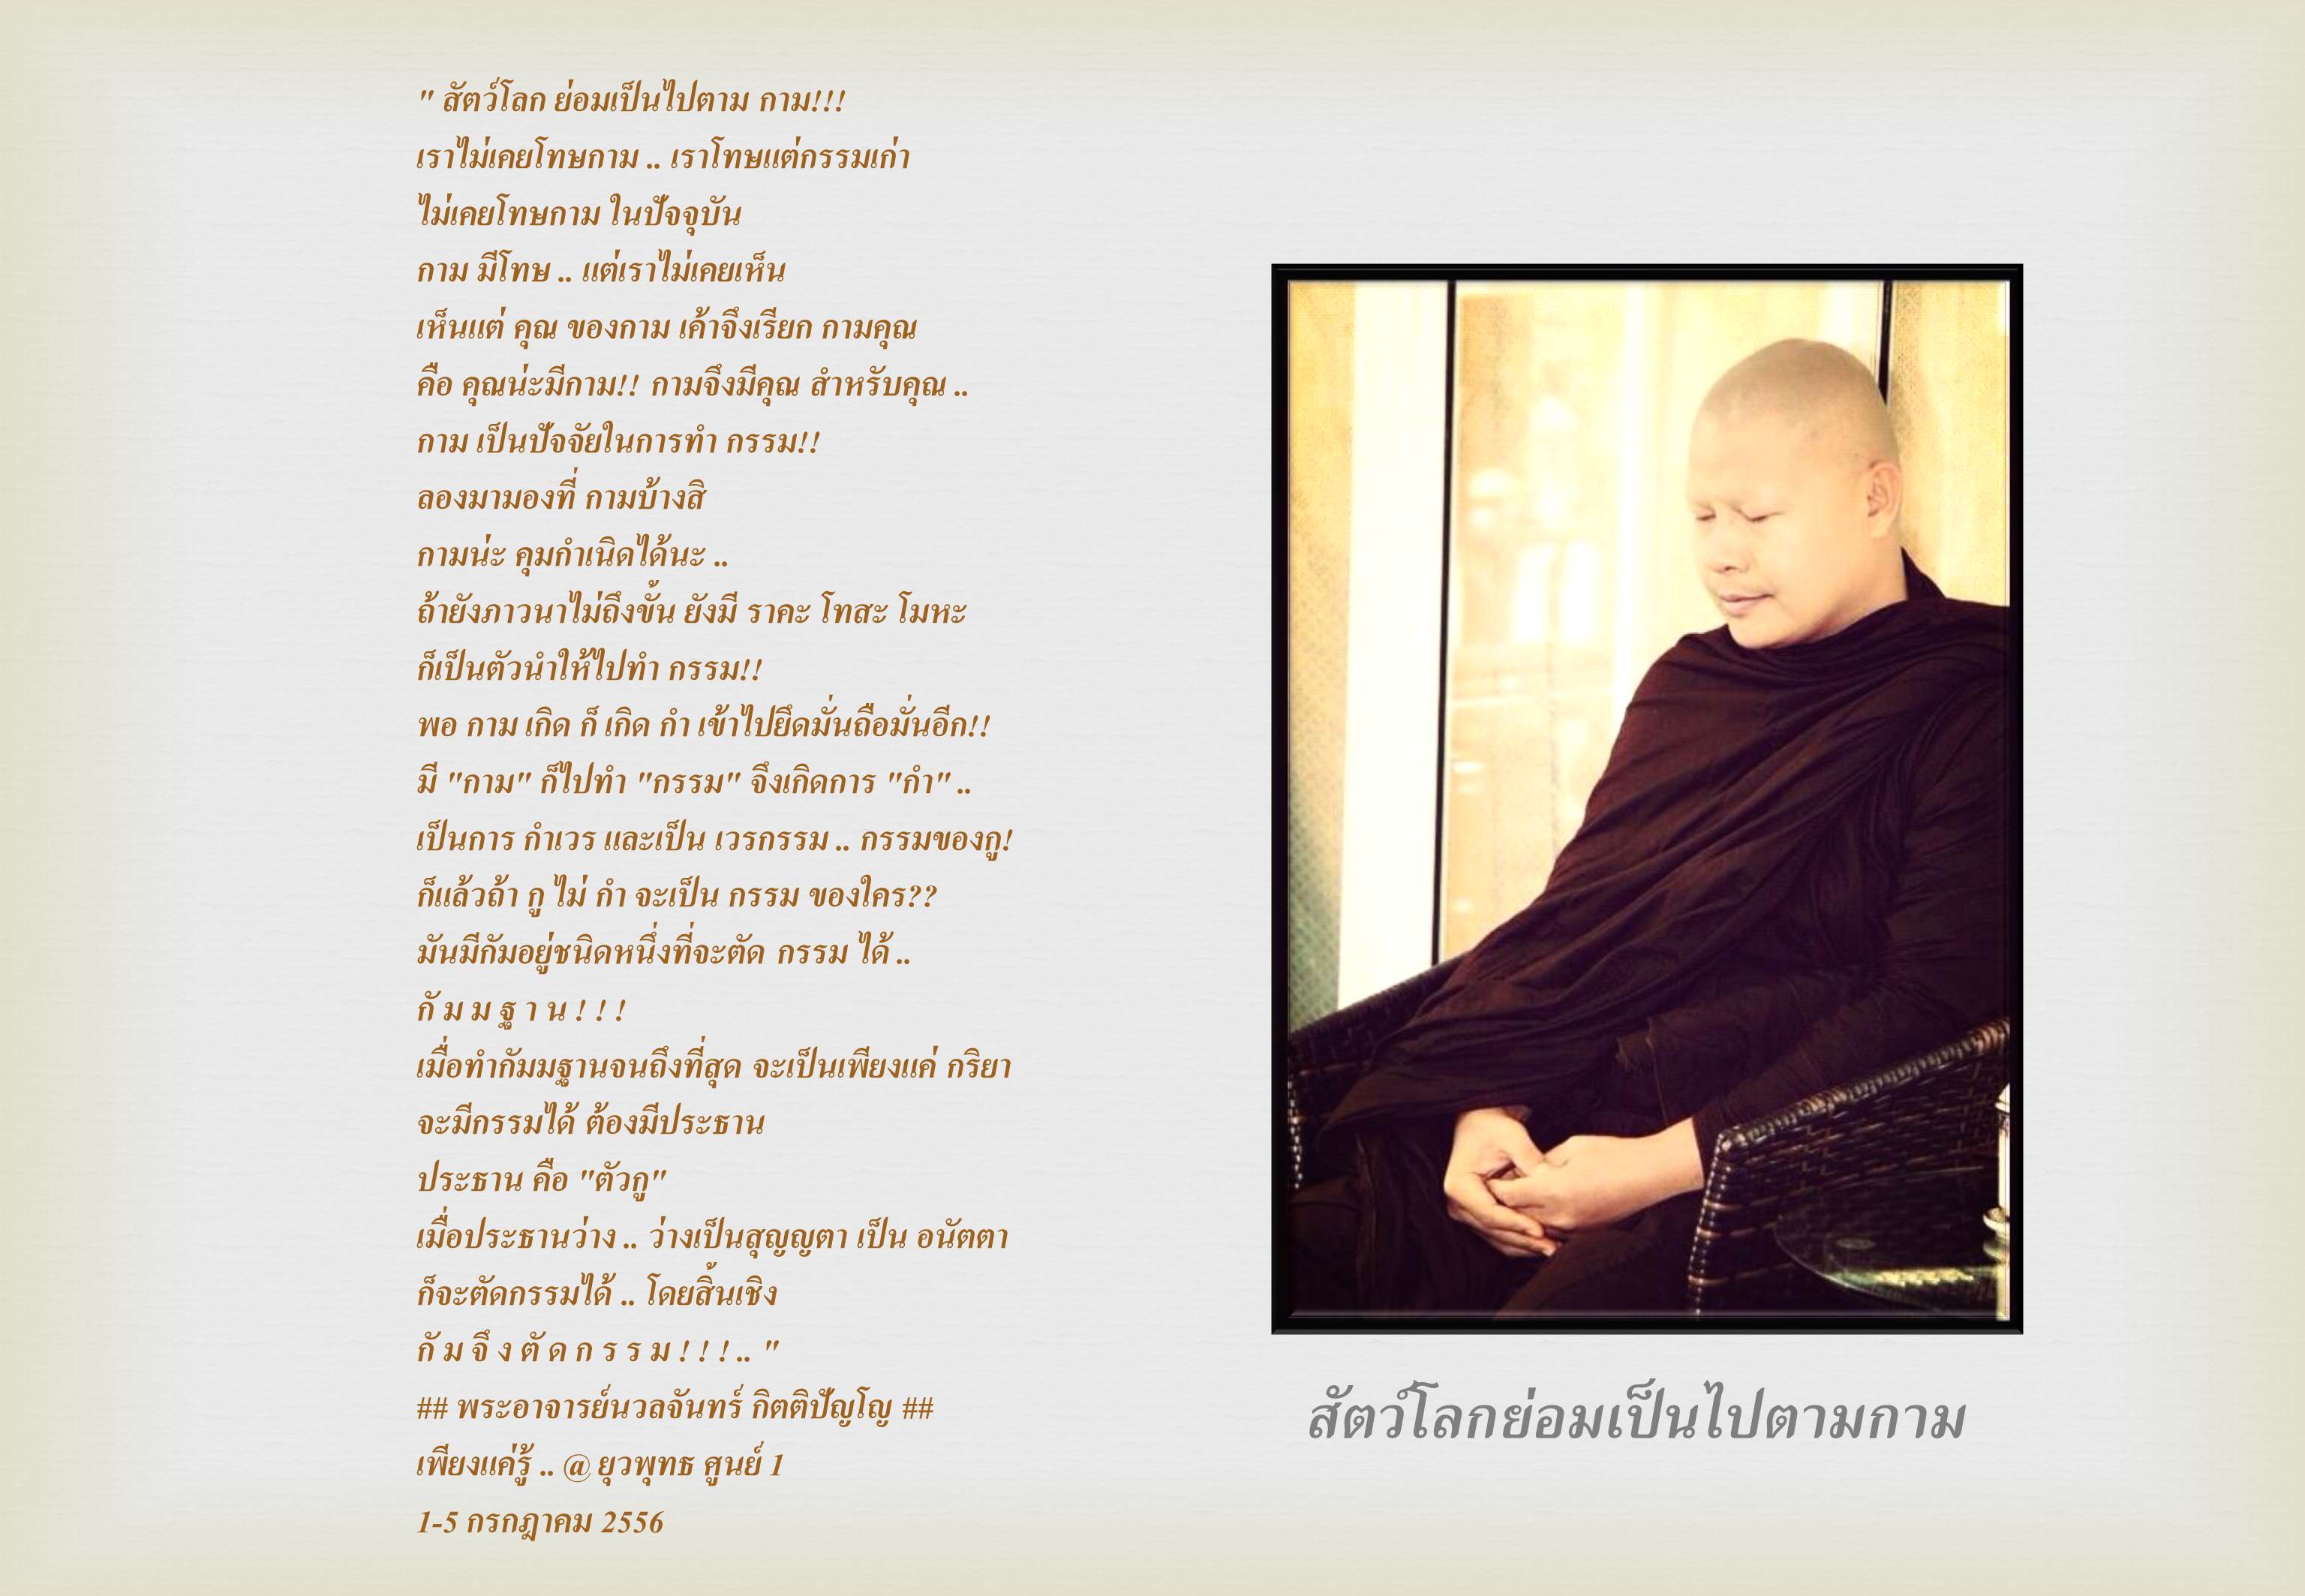 " สัตว์โลก ย่อมเป็นไปตาม กาม!!!
เราไม่เคยโทษกาม .. เราโทษแต่กรรมเก่า
ไม่เคยโทษกาม ในปัจจุบัน
กาม มีโทษ .. แต่เราไม่เคยเห็น
เห็นแต่ คุณ ของกาม เค้าจึงเรียก กามคุณ
คือ คุณน่ะมีกาม!! กามจึงมีคุณ สำหรับคุณ ..
กาม เป็นปัจจัยในการทำ กรรม!!
ลองมามองที่ กามบ้างสิ
กามน่ะ คุมกำเนิดได้นะ ..
ถ้ายังภาวนาไม่ถึงขั้น ยังมี ราคะ โทสะ โมหะ
ก็เป็นตัวนำให้ไปทำ กรรม!!
พอ กาม เกิด ก็ เกิด กำ เข้าไปยึดมั่นถือมั่นอีก!!
มี "กาม" ก็ไปทำ "กรรม" จึงเกิดการ "กำ" ..
เป็นการ กำเวร และเป็น เวรกรรม .. กรรมของกู!
ก็แล้วถ้า กู ไม่ กำ จะเป็น กรรม ของใคร??
มันมีกัมอยู่ชนิดหนึ่งที่จะตัด กรรม ได้ ..
กั ม ม ฐ า น ! ! !
เมื่อทำกัมมฐานจนถึงที่สุด จะเป็นเพียงแค่ กริยา
จะมีกรรมได้ ต้องมีประธาน
ประธาน คือ "ตัวกู"
เมื่อประธานว่าง .. ว่างเป็นสุญญตา เป็น อนัตตา
ก็จะตัดกรรมได้ .. โดยสิ้นเชิง
กั ม จึ ง ตั ด ก ร ร ม ! ! ! .. "
## พระอาจารย์นวลจันทร์ กิตติปัญโญ ##
เพียงแค่รู้ .. @ ยุวพุทธ ศูนย์ 1
1-5 กรกฎาคม 2556
สัตว์โลกย่อมเป็นไปตามกาม